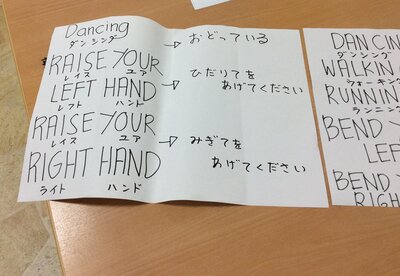 Dancing
ダンシング
→ おどっている
RAISE YOUR
レイズ ユア
LEFT HAND
レフト ハンド
→ ひだりてを
あげてください
RAISE YOUR
レイズ ユア
RIGHT HAND
ライト ハンド
→ みぎてを
あげてください
DANCIN
ダンシング
WALKIN
ウォーキング
RUNNIN
ランニング
BEND Y
LEF
BEND Y
RIGH